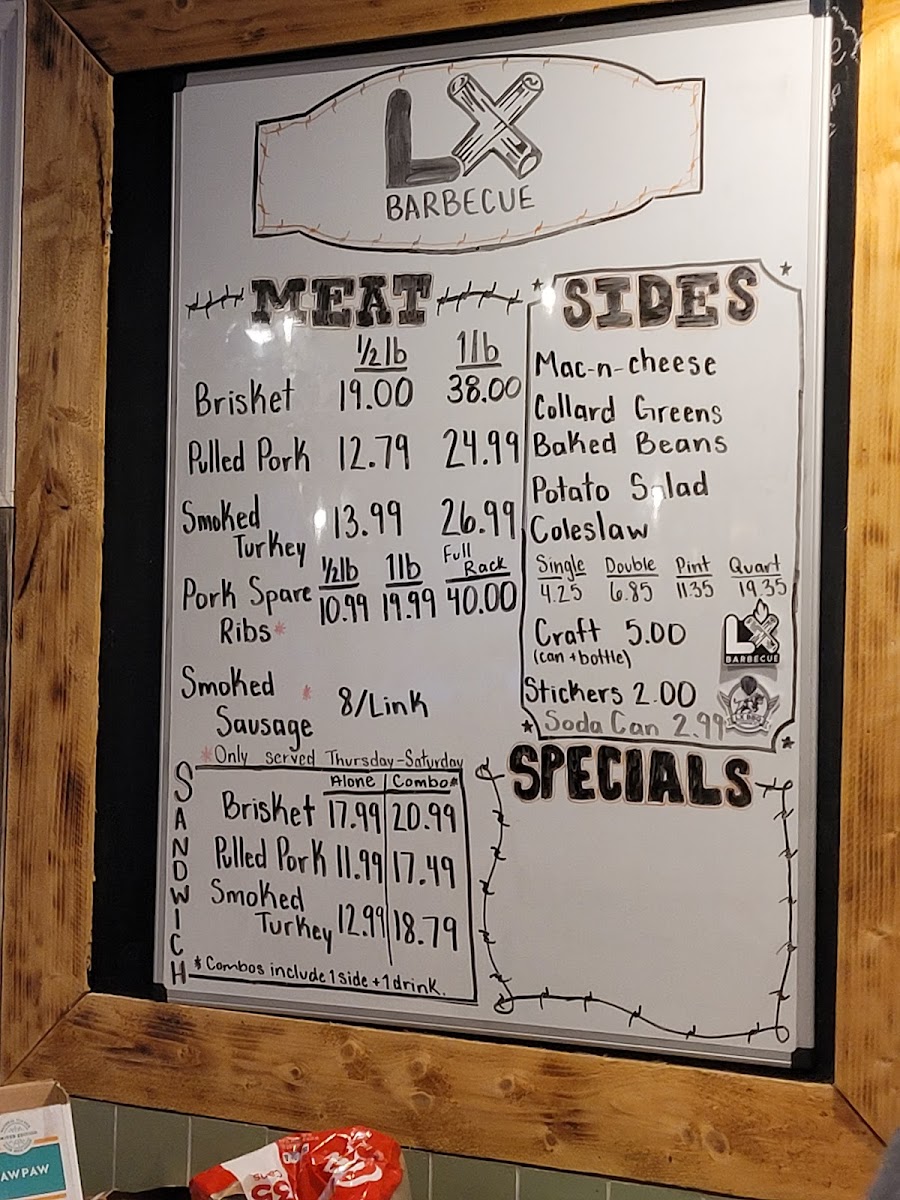 LX
BARBECUE
MEAT
1/2 lb 1 lb
Brisket 19.00 38.00
Pulled Pork 12.79 24.99
Smoked Turkey 13.99 26.99
1/2 lb 1 lb Full Rack
Pork Spare Ribs* 10.99 19.99 40.00
Smoked Sausage * 8/Link
*Only served Thursday-Saturday
SANDWICH
Alone Combo*
Brisket 17.99 20.99
Pulled Pork 11.99 17.49
Smoked Turkey 12.99 18.79
*Combos include 1 side + 1 drink.
SIDES
Mac-n-cheese
Collard Greens
Baked Beans
Potato Salad
Coleslaw
Single Double Pint Quart
4.25 6.85 11.35 19.35
Craft 5.00
(can + bottle)
LX
BARBECUE
Stickers 2.00
Soda Can 2.99
SPECIALS
AWPAW